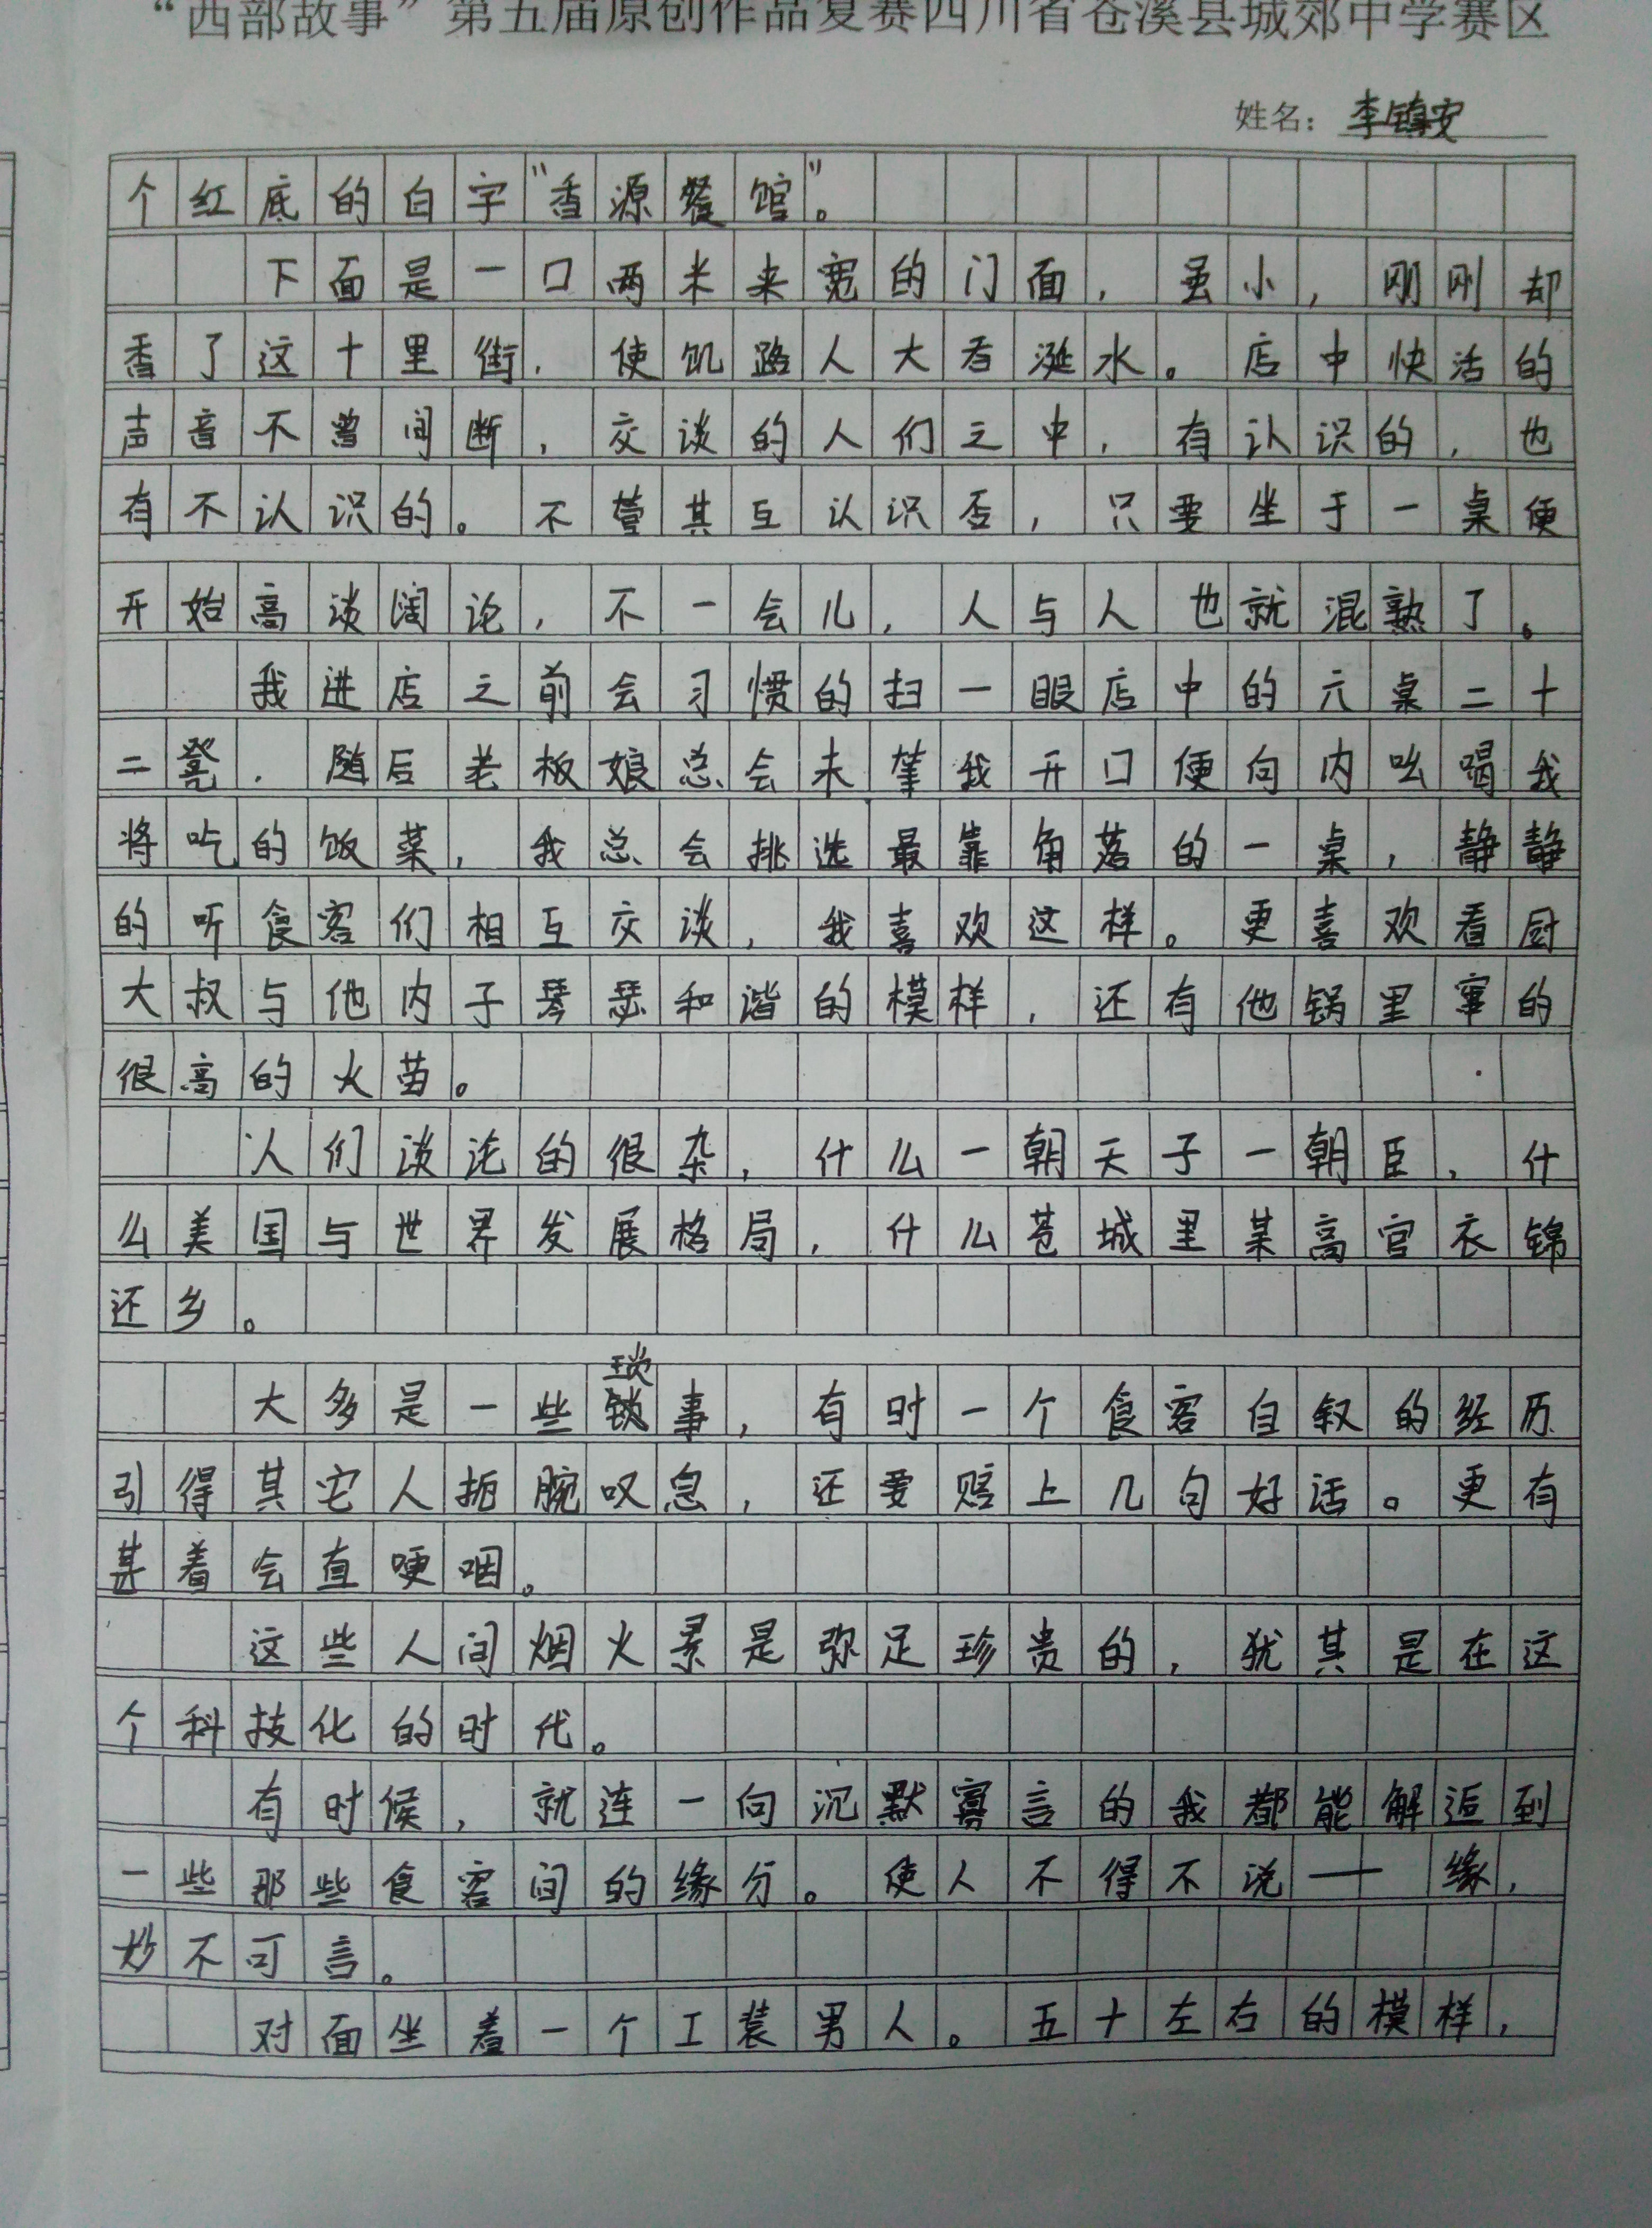 “西部故事”第五届原创作品复赛四川省苍溪县城郊中学赛区
姓名：李镇安
个红底的白字“香源餐馆”。
下面是一口两米来宽的门面，虽小，刚刚却
香了这十里街，使饥路人大吞涎水。店中快活的
声音不曾间断，交谈的人们之中，有认识的，也
有不认识的。不管其互认识否，只要坐于一桌便
开始高谈阔论，不一会儿，人与人也就混熟了。
我进店之前会习惯的扫一眼店中的六桌二十
二凳，随后老板娘总会未等我开口便向内吆喝我
将吃的饭菜，我总会挑选最靠角落的一桌，静静
的听食客们相互交谈，我喜欢这样。更喜欢看厨
大叔与他内子琴瑟和谐的模样，还有他锅里窜的
很高的火苗。
人们谈论的很杂，什么一朝天子一朝臣，什
么美国与世界发展格局，什么苍城里某高官衣锦
还乡。
琐
大多是一些锁事，有时一个食客自叙的经历
引得其它人扼腕叹息，还要赔上几句好话。更有
甚着会直哽咽。
这些人间烟火景是弥足珍贵的，犹其是在这
个科技化的时代。
有时候，就连一向沉默寡言的我都能解逅到
一些那些食客间的缘分。使人不得不说——缘，
妙不可言。
对面坐着一个工装男人。五十左右的模样，